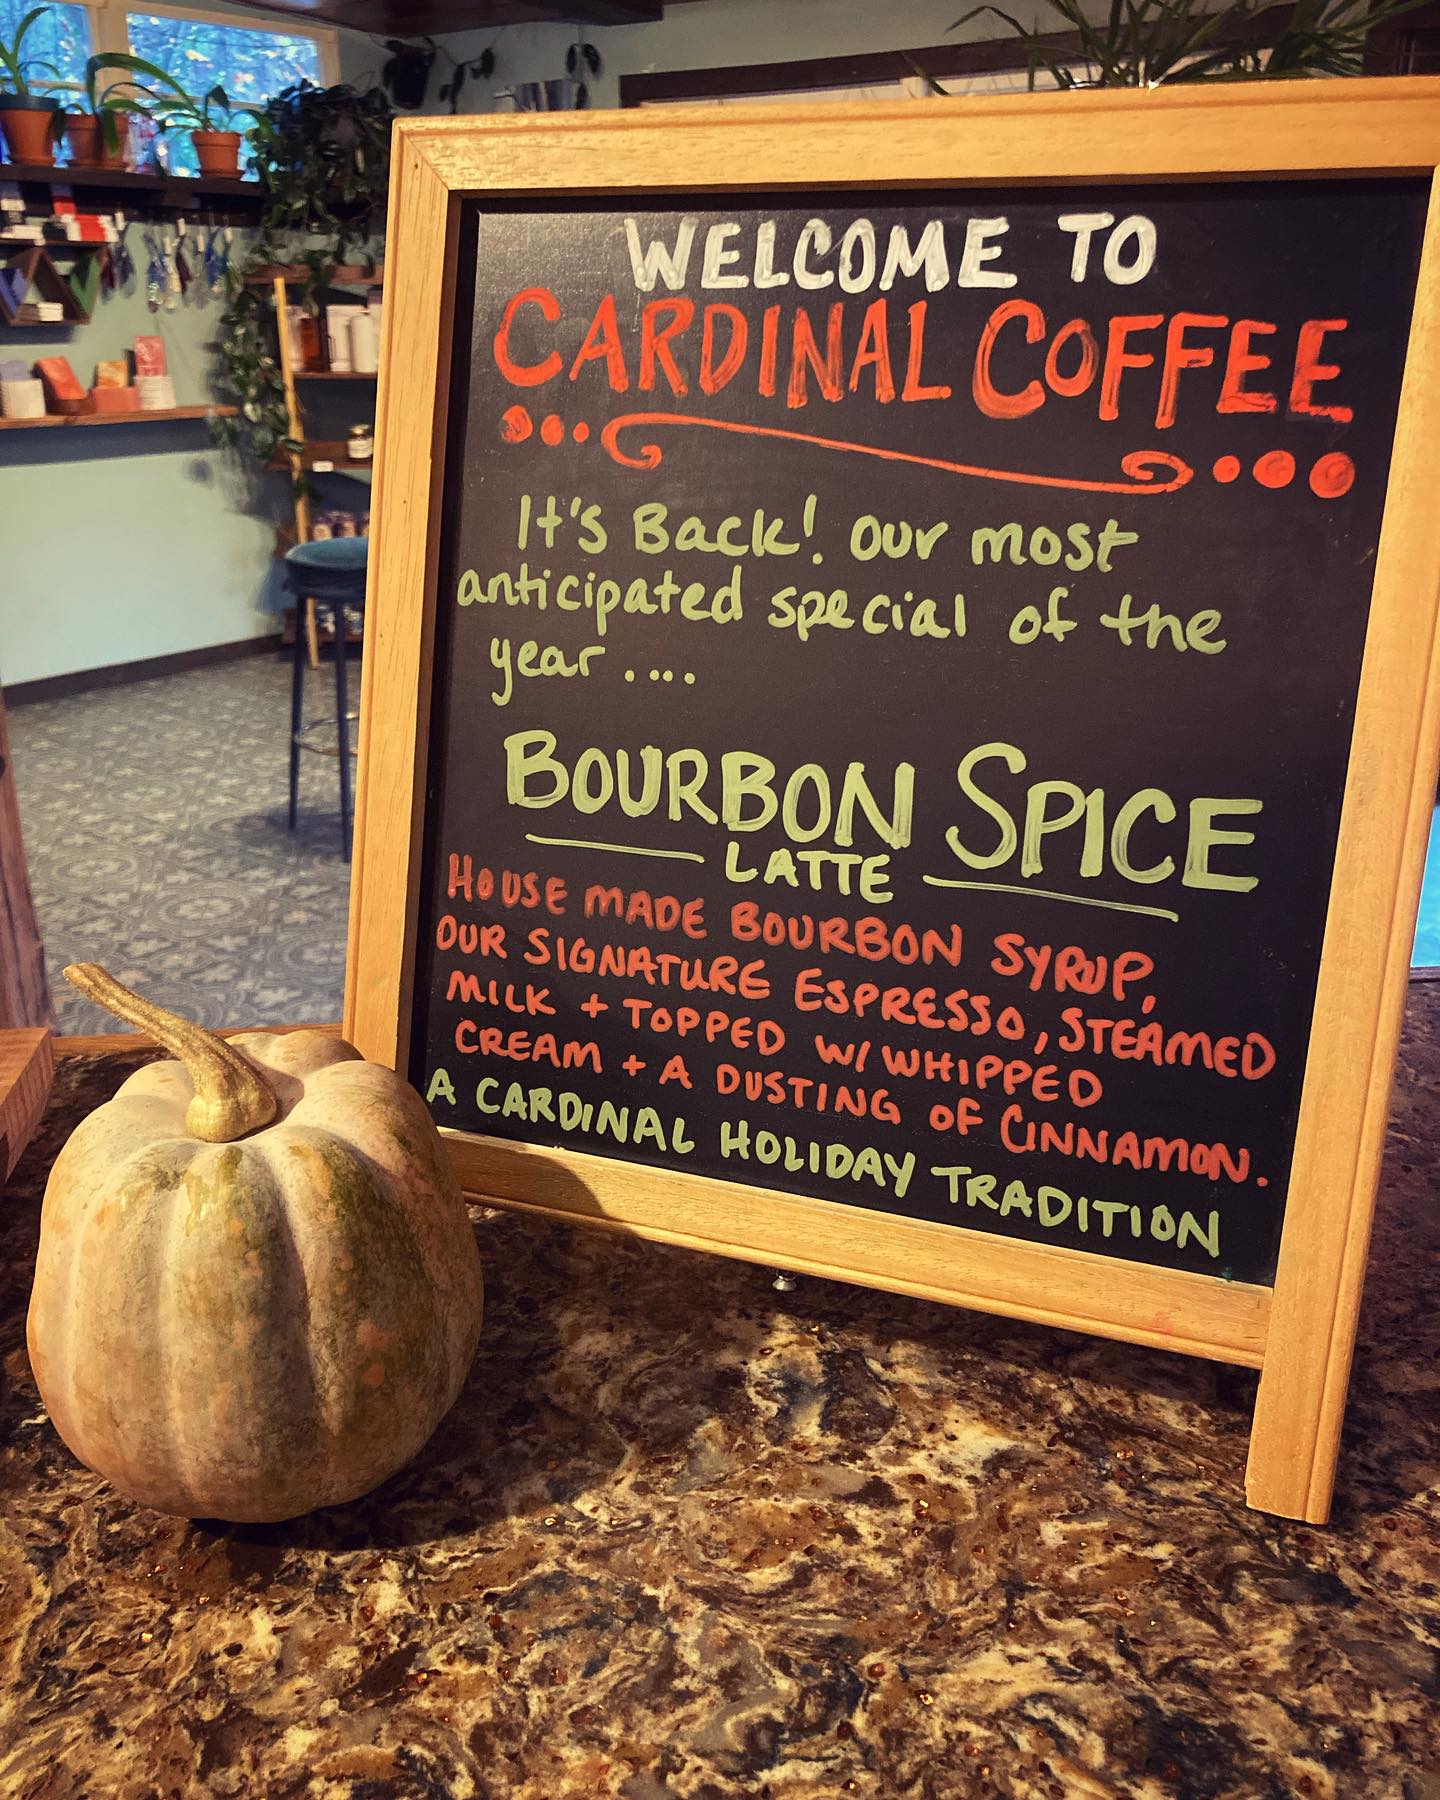 WELCOME TO
CARDINAL COFFEE
It's Back! Our most
anticipated special of the
year ....
BOURBON SPICE
LATTE
HOUSE MADE BOURBON SYRUP,
OUR SIGNATURE ESPRESSO, STEAMED
MILK + TOPPED W/ WHIPPED
CREAM + A DUSTING OF CINNAMON.
A CARDINAL HOLIDAY TRADITION